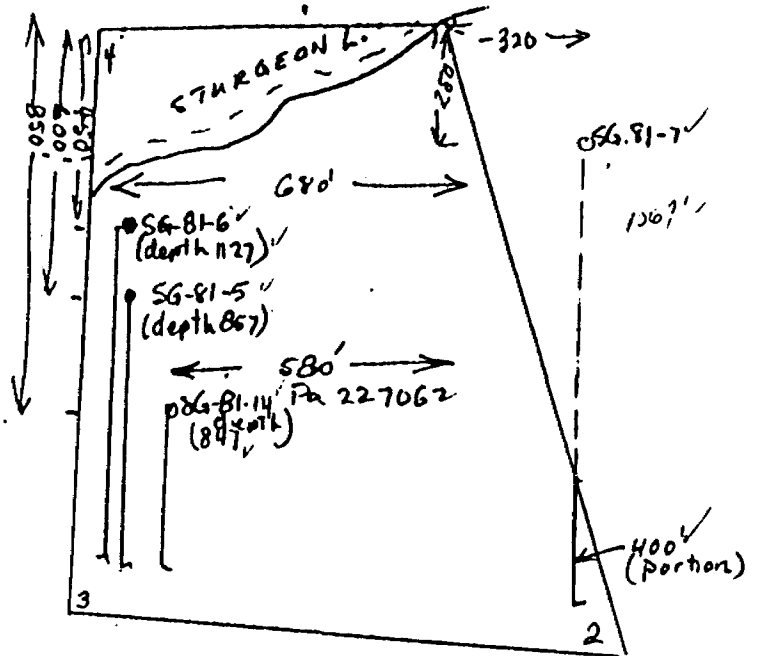 4
STURGEON L.
-320
250'
850'
600'
450'
SG-81-7
1067'
680'
SG-81-6
(depth 1127)
SG-81-5
(depth 857)
580'
SG-81-14
Pa 227062
(depth
847)
400'
(portion)
3
2